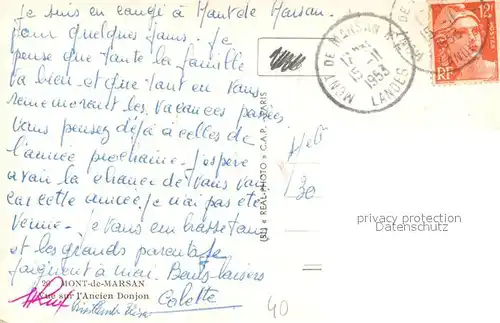 Je suis en congé à Mont de Marsan
pour quelques jours. Je
pense que toute la famille
va bien et que tout en vous
remémorant les vacances passées
vous pensez déjà à celles de
l'année prochaine. J'espère
avoir la chance de vous voir
car cette année je n'ai pas été
venue. Je vous embrasse
et les grands parents se
joignent à moi. Bons baisers
Colette
20 MONT-de-MARSAN
Vue sur l'Ancien Donjon
40
30
« REAL-PHOTO » C.A.P. PARIS
MONT DE MARSAN R.P.
1953
LANDES
12F
POSTES
RF
privacy protection
Datenschutz